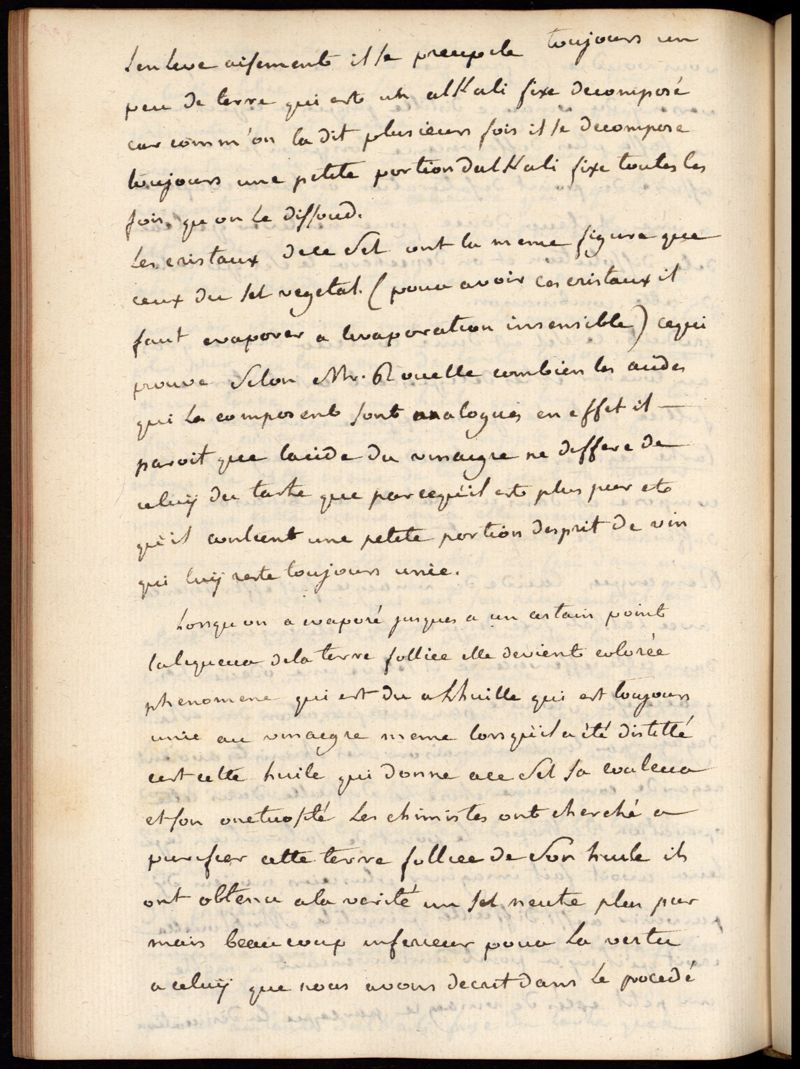 l'enleve aisement il se precipite toujours un
peu de terre qui est un alkali fixe decomposé
car comm'on la dit plusieurs fois il se decompose
toujours une petite portion dalkali fixe toutes les
fois qu on le dissoud.
Les cristaux de ce sel ont la meme figure que
ceux du sel vegetal. (pour avoir ces cristaux il
faut evaporer a levaporation insensible) ce qui
prouve selon Mr. Rouelle combien les acides
qui le composent sont analogues en effet il
paroit que lacide du vinaigre ne differe de
celuy du tartre que parcequ'il est plus pur et
qu'il contient une petite portion desprit de vin
qui luy reste toujours unie.
Lorsqu on a evaporé jusques a un certain point
la liqueur de la terre folliée elle devient colorée
phenomene qui est du a lhuille qui est toujours
unie au vinaigre meme lorsqu'il a été distillé
cest cette huile qui donne a ce sel sa couleur
et son onctuosité Les chimistes ont cherché a
purifier cette terre folliée de son huile ils
ont obtenu a la verité un sel neutre plus pur
mais beaucoup inferieur pour la vertu
a celuy que nous avons decrit dans le procedé